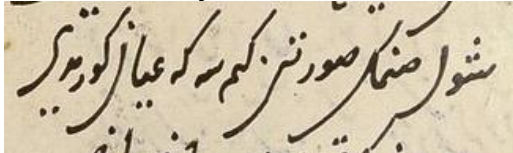 شول صنمک صورتن کمسه که عیان کورمدی